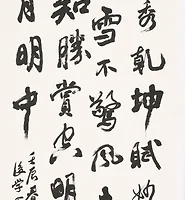 秀乾坤賦妙
雪不驚風
知勝賞空明
月明中
壬辰春
後学